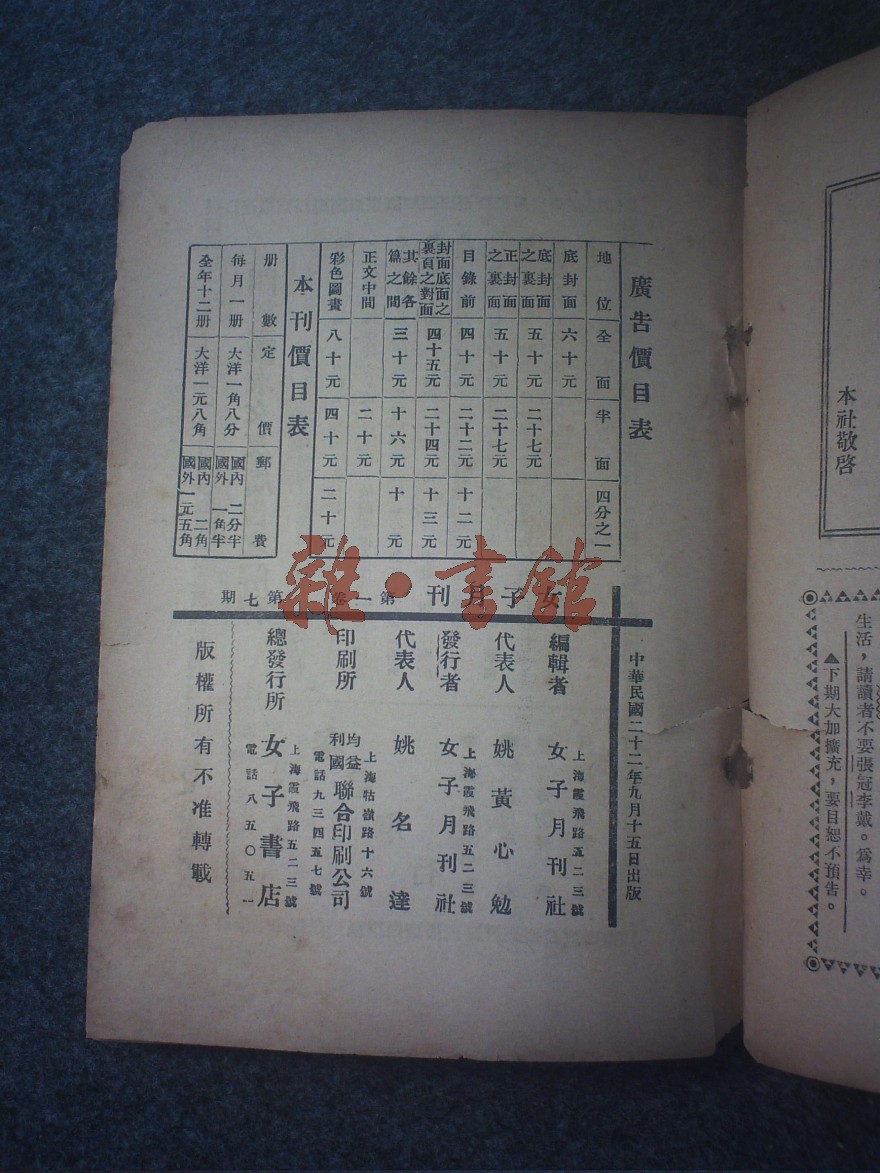 本社敬啓
生活，請讀者不要張冠李戴。爲幸。
▲下期大加擴充，要目恕不預告。
廣告價目表
地位 全面 半面 四分之一
底封面 六十元
底封面之裏面 五十元 二十七元
正封面之裏面 五十元 二十七元
目錄前 四十元 二十二元 十二元
封面底面之裏頁之對面 四十五元 二十四元 十三元
其餘各篇之間 三十元 十六元 十元
正文中間 二十元
彩色圖畫 八十元 四十元 二十元
本刊價目表
册數 定價 郵費
每月一册 大洋一角八分 國內 二分半 國外 一角半
全年十二册 大洋一元八角 國內 二角 國外 一元五角
中華民國二十二年九月十五日出版
女子月刊 第一卷 第七期
編輯者 女子月刊社
上海霞飛路五二三號
代表人 姚黃心勉
發行者 女子月刊社
上海霞飛路五二三號
代表人 姚名達
印刷所 均益利國聯合印刷公司
上海牯嶺路十六號
電話九三四五七號
總發行所 女子書店
上海霞飛路五二三號
電話八五〇五一
版權所有不准轉載
雜·書館